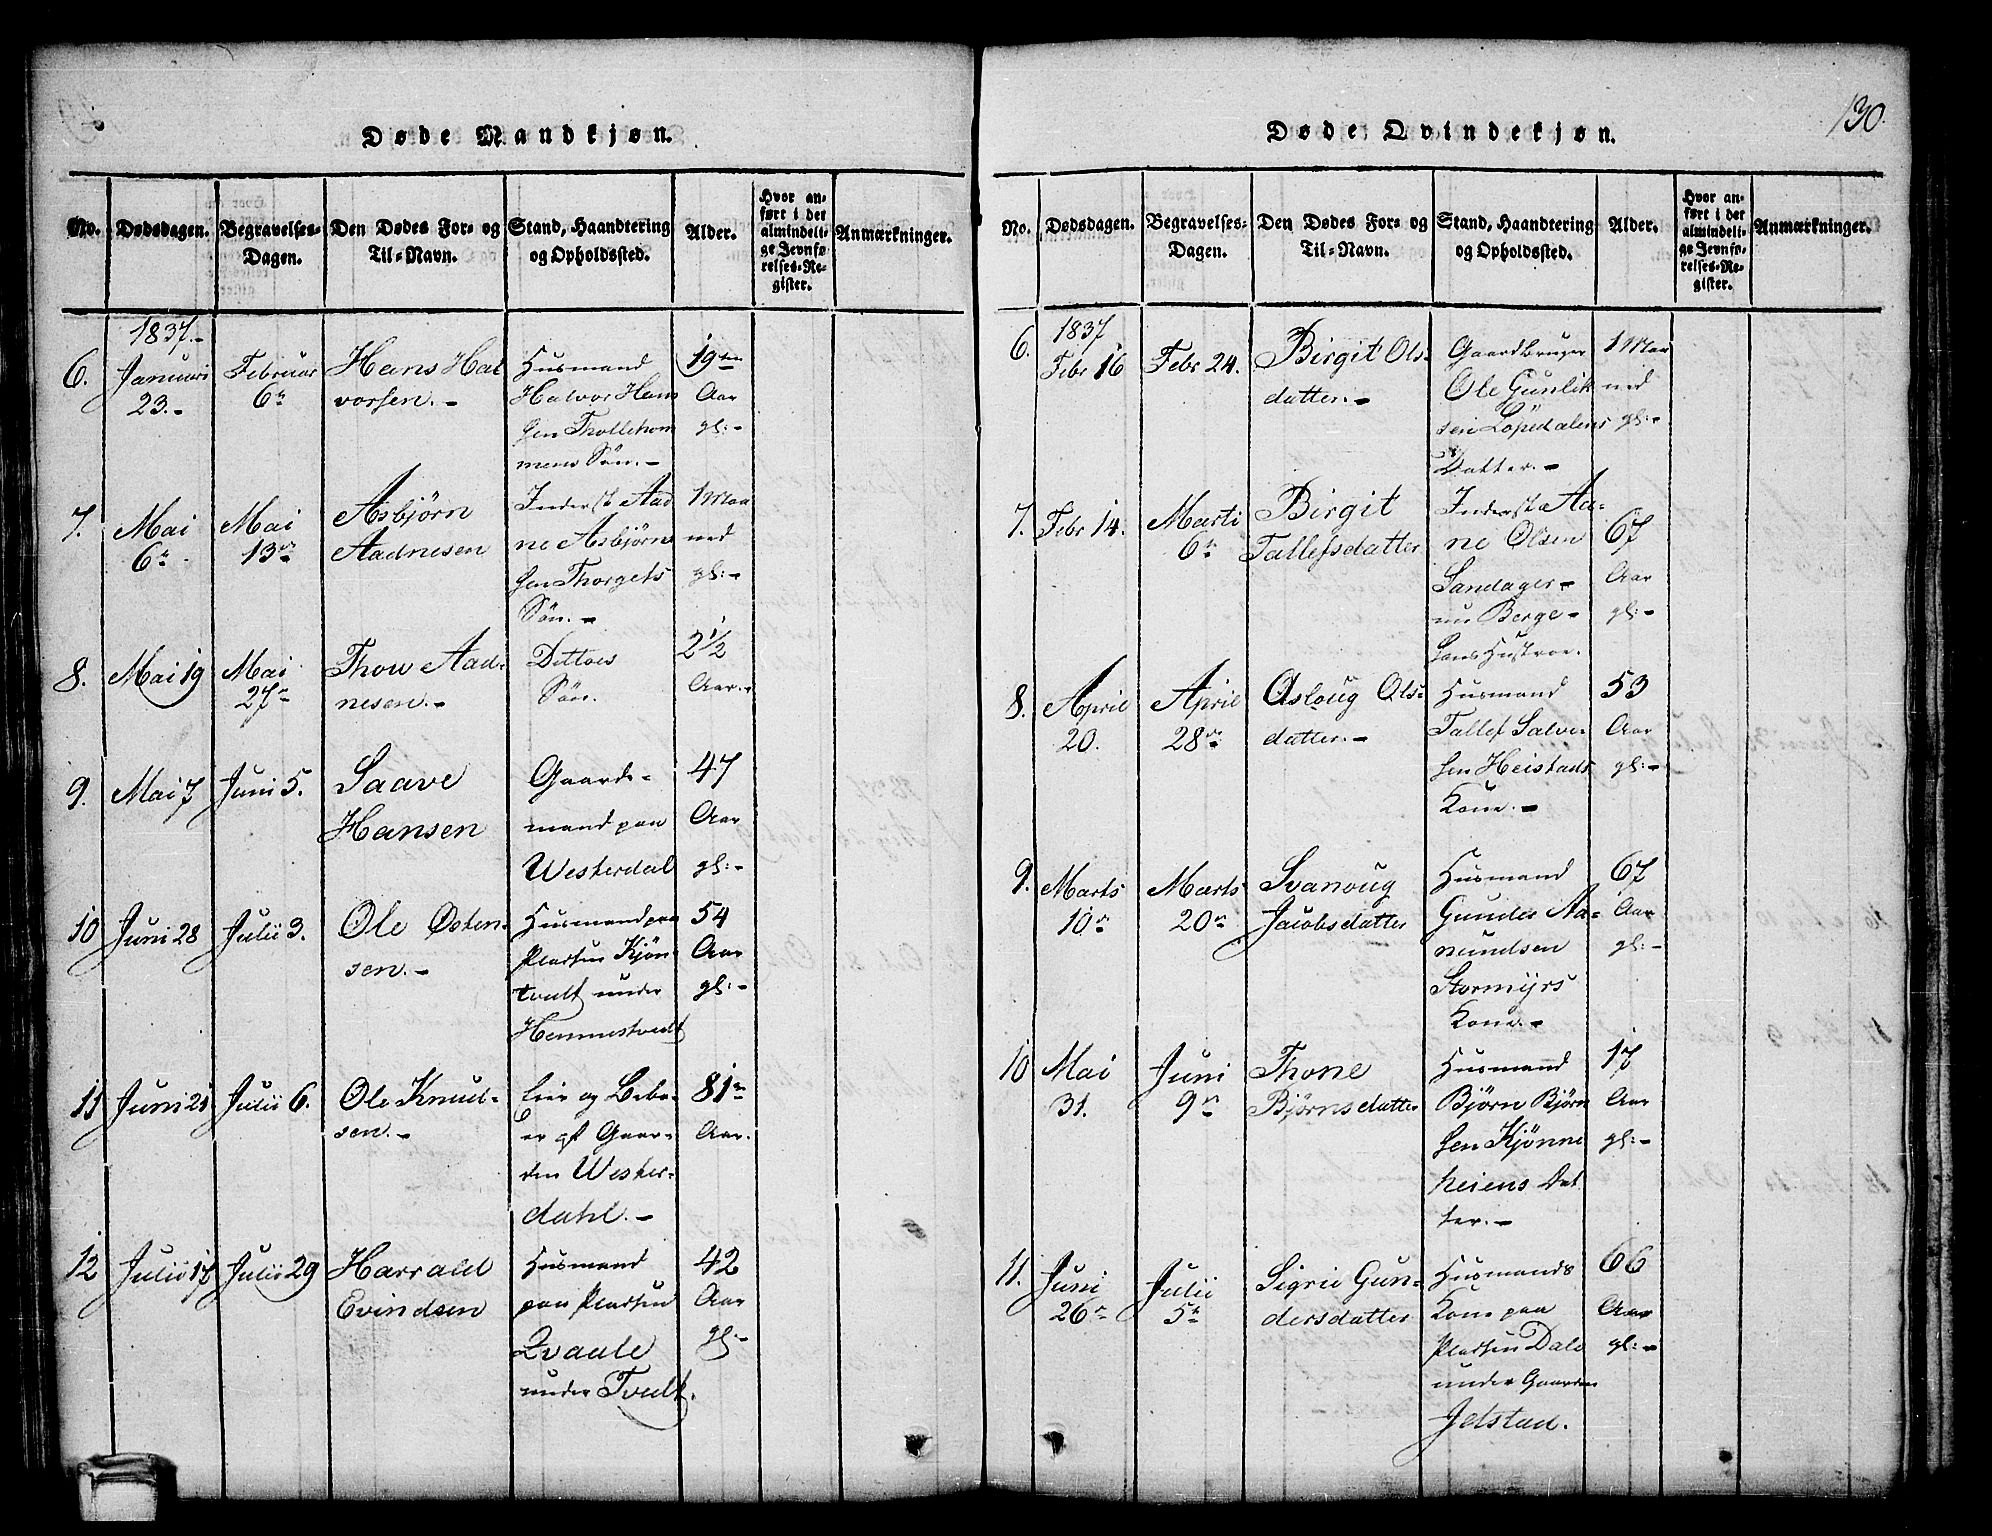 130.
Døde Mandkjøn.
No.
Dødsdagen.
Begravelses-
Dagen.
Den Dødes For- og
Til-Navn.
Stand, Haandtering
og Opholdssted.
Alder.
Hvor an-
ført i det
almindeli-
ge Jevnfø-
relses-Re-
gister.
Anmærkninger.
1837.-
6.
Januari
23.-
Februar
6te
Hans Hal
vorsen.-
Husmand
Halvor Han
sen Thollehom
mens Søn.-
19ten
Aar
gl:-
7.
Mai
6te
Mai
13de
Asbjörn
Aadnesen
Inderst Aad
ne Asbjörn
sen Thorgets
Sön.-
1 Maa
ned
gl:-
8.
Mai 19
Mai
27de
Thow Aad-
nesen.-
Dittoes
Sön.
2 1/2
Aar.-
9.
Mai 7
Juni 5.
Saave
Hansen
Gaard-
mand paa
Westerdal
47
Aar
gl:-
10
Juni 28
Julii 3.
Ole Østen-
sen.-
Husmand paa
Pladsen Kjön
tvult under
Hemmestvedt
54
Aar
gl:-
11
Juni 21
Julii 6.
Ole Knud-
sen.-
Eier og Bebo-
er af Gaar-
den Wester-
dahl.-
81
Aar.
12
Julii 17
Julii 29
Harrald
Evindsen
Husmand
paa Pladsen
Qvaale
under Tvedt.
42
Aar
gl:-
Døde Qvindekjøn.
No.
Dødsdagen.
Begravelses-
Dagen.
Den Dødes For- og
Til-Navn.
Stand, Haandtering
og Opholdssted.
Alder.
Hvor an-
ført i det
almindeli-
ge Jevnfø-
relses-Re-
gister.
Anmærkninger.
1837
6.
Febr 16
Febr 24.
Birgit Ols-
datter.-
Gaardbruger
Ole Gunlik
sen Löpedalens
Datter.-
1 Maa
ned
gl:-
7.
Febr 14.
Marti
6te
Birgit
Tallefsdatter
Inderst Aa-
ne Olsen
Sandager-
nu Berge-
Hans Hustroe.
67
Aar
gl:-
8.
April
20.
April
28de
Asloug Ols-
datter.-
Husmand
Tallef Salve
sen Heistads
Kone.-
53
Aar
gl:-
9.
Marts
10de
Marts
20de
Svanoug
Jacobsdatter
Husmand
Gunder Aa-
nundsen
Stormyrs
Kone.-
67
Aar
gl:-
10
Mai
31.
Juni
9de
Thone
Bjørnsdatter
Husmand
Bjørn Bjørn
sen Kjønne
heiens Dat
ter.-
17
Aar
gl:-
11.
Juni
26de
Julii
5te
Sigrie Gun-
dersdatter
Husmands
Kone paa
Pladsen Dale
under Gaarden
Jelstad.
66
Aar
gl:-